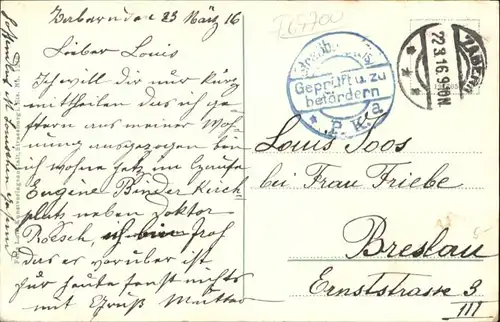 Zabern den 23 März 16
Lieber Louis
Ich will dir nur kurz
mittheilen das ich ge-
stern aus meiner Woh-
nung ausgezogen bin
ich wohne jetz im Haufe
Eugene Binder Kirch-
platz neben Doktor
Roesch, ich bin froh
das er vorüber ist
für heute sonst nichts
mit Gruß Mutter
Geprüft u. zu
befördern
P. K. a
ZABERN
22.3.16.9-10N.
Louis Loos
bei Frau Friebe
Breslau
Ernststrasse 3
III